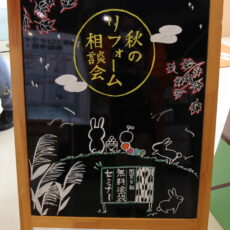 秋の
リフォーム
相談会
無料塗装
セミナー